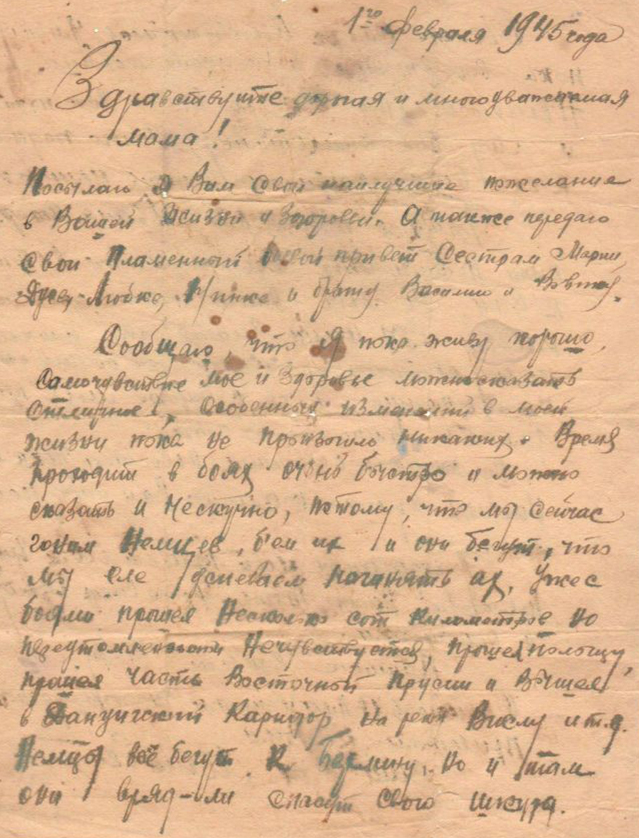 1го февраля 1945 года
Здравствуйте дорная и многоуважаемая
мама!
Посылаю я Вам свои наилучшие пожелание
в Вашей жизни и здоровьи. А также передаю
свой пламенный боевой привет Сестрам Марии,
Любке, Нинке и брату Василию и
Сообщаю, что я пока живу хорошо,
самочувствие мое и здоровье можно сказать
отличное!, особенных изменений в моей
жизни пока не произошло никаких. Время
проходит в боях очень быстро и можно
сказать и нескучно, потому, что мы сейчас
гоним немцев, бьем их и они бегут, что
мы еле успеваем их, уже с
боями прошел несколько сот километров но
переутомленности нечувствуется, прошел польшу,
прошел часть Восточной Прусии и вышел
в Данцигский Каридор на реку Вислу и т.д.
Немцы все бегут к Берлину, но и там
они вряд-ли спасут свою шкуру.